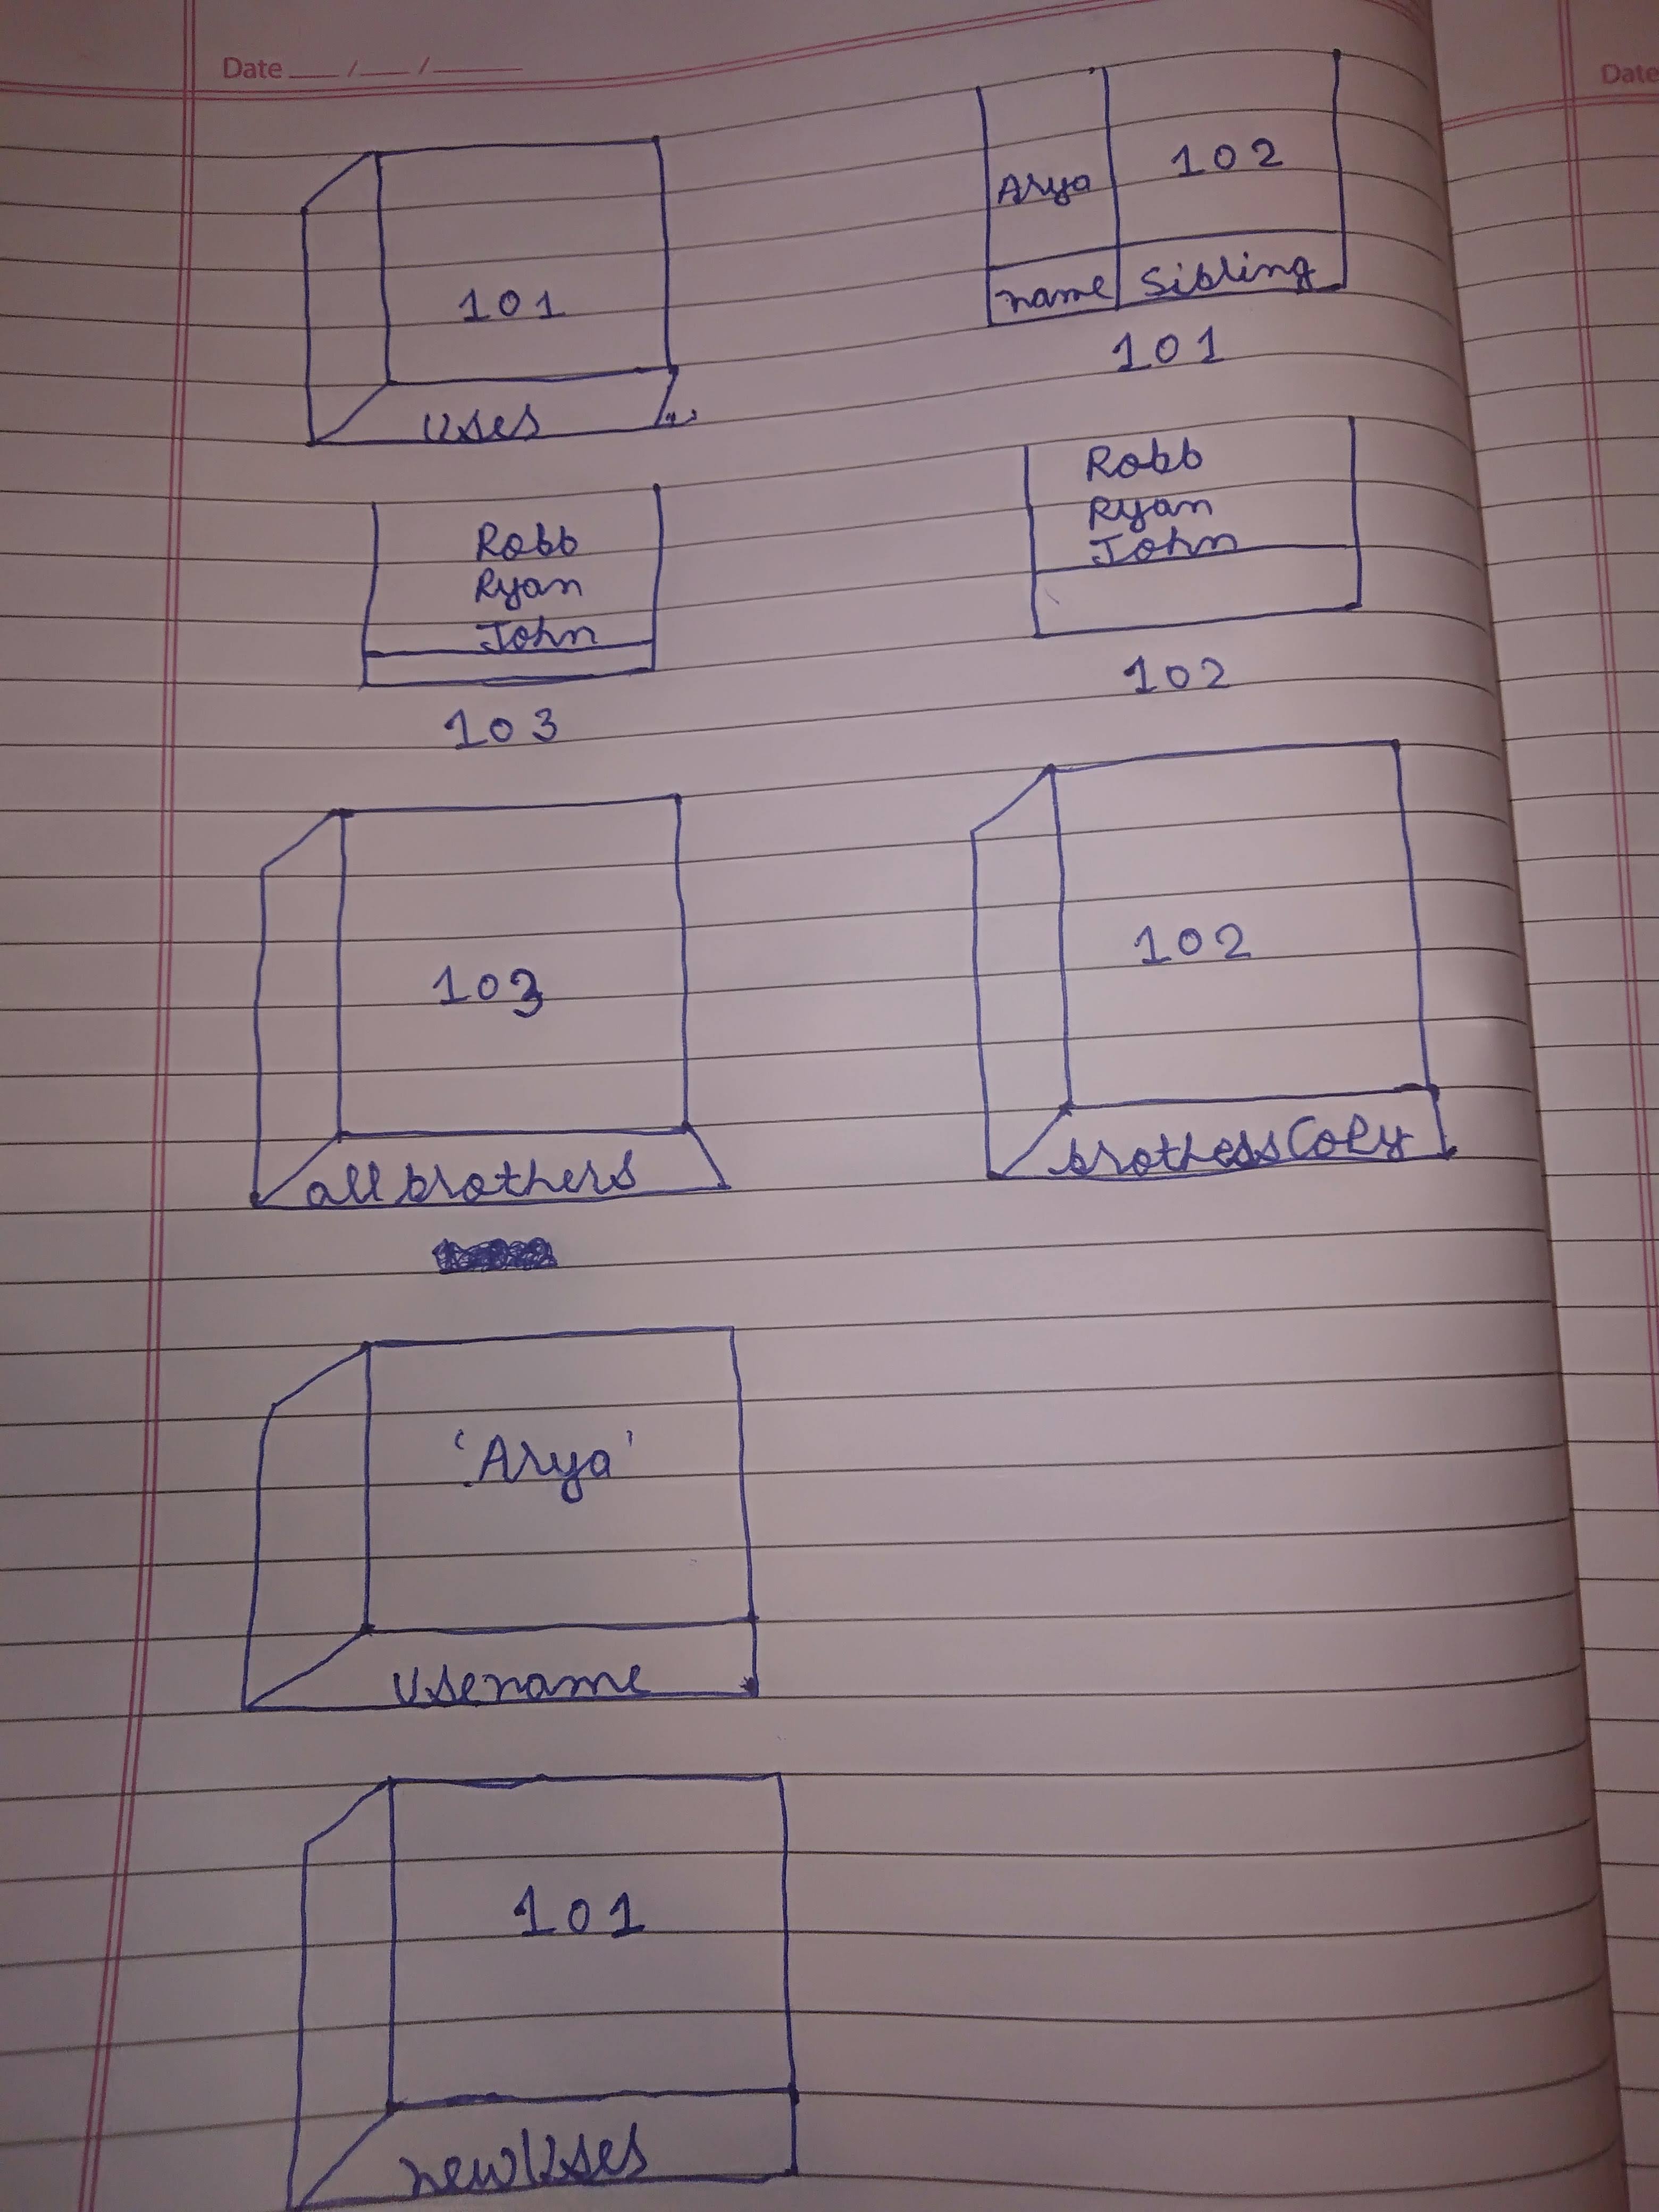 Date __/__/____
Date
101
user
Arya
102
name
Sibling
101
Robb
Ryan
John
103
Robb
Ryan
John
102
103
allbrothers
102
brothersCopy
'Arya'
username
101
newUser